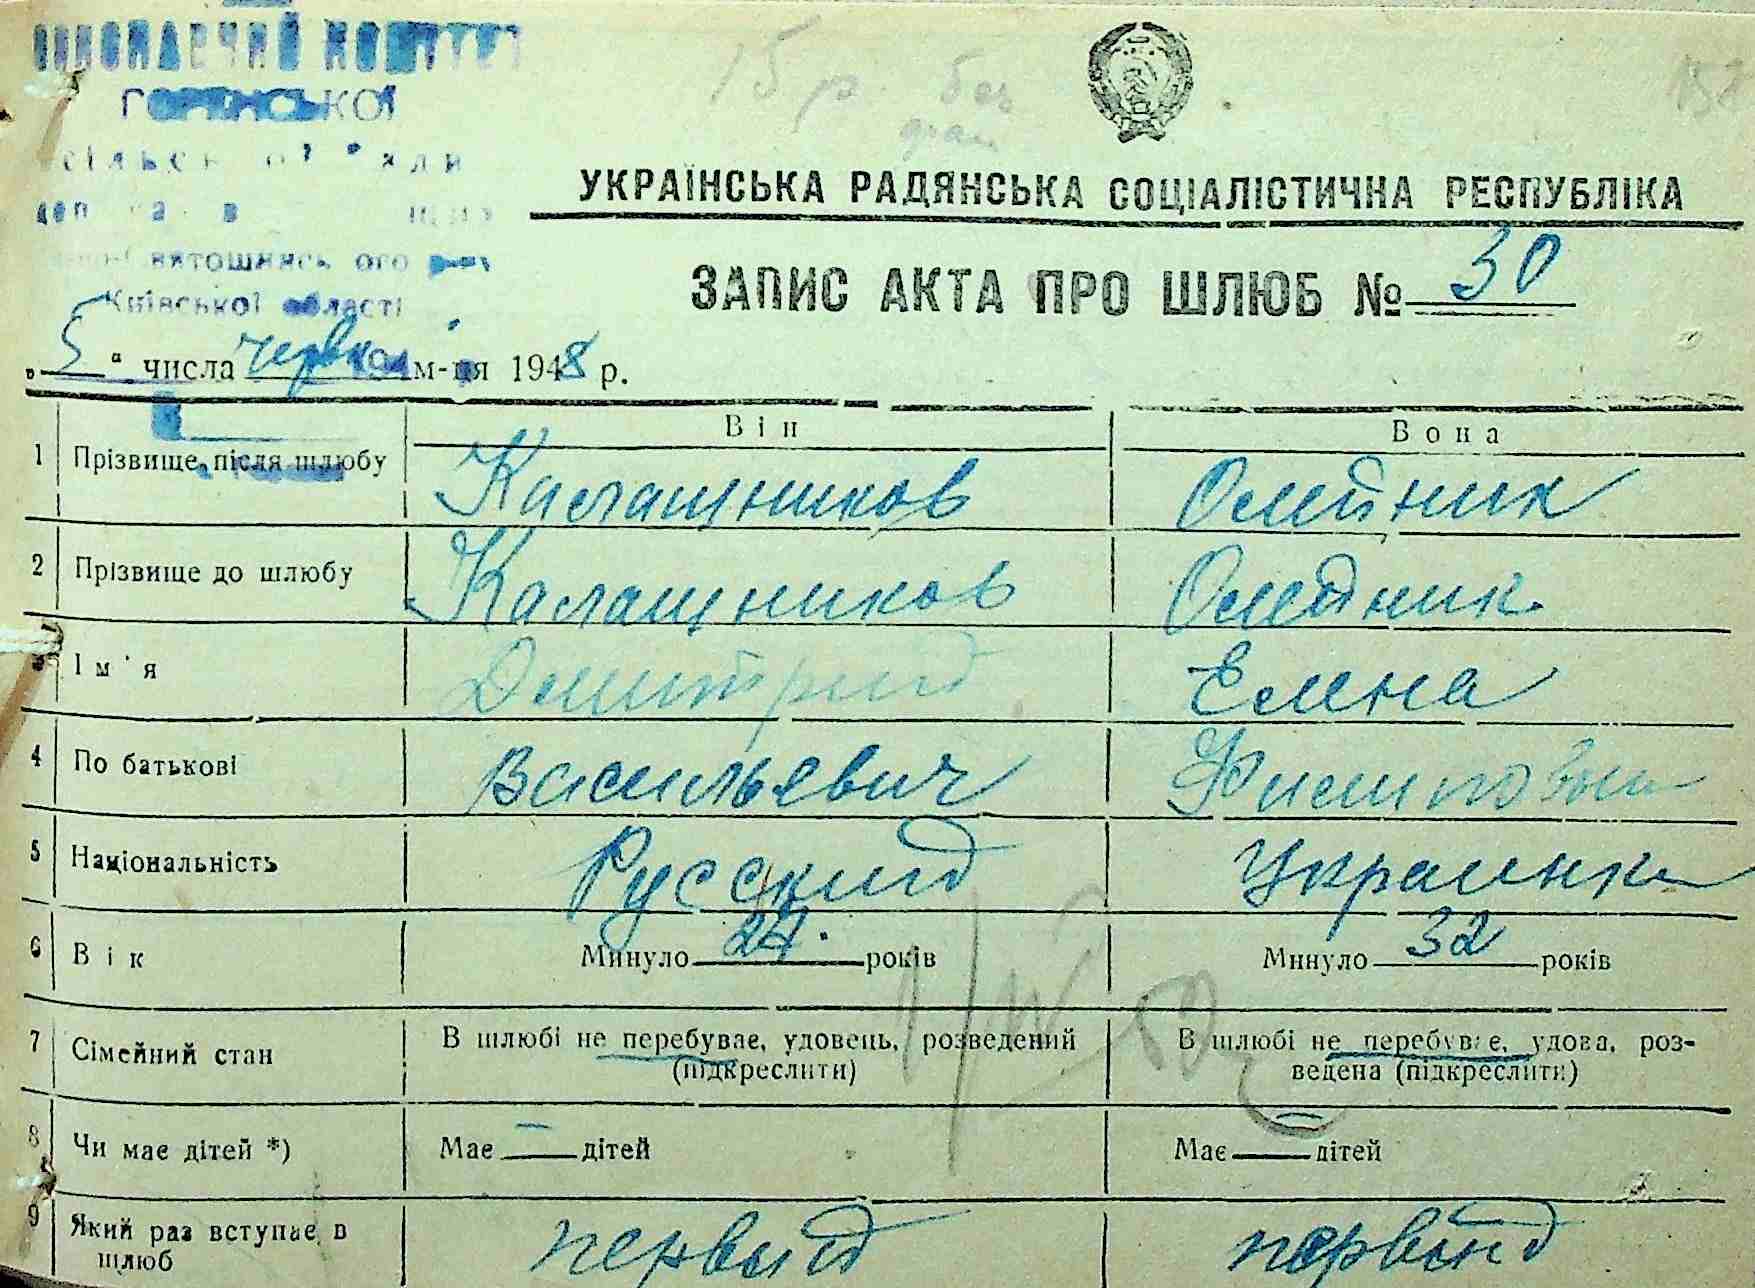 КОМІТЕТ
ГОРЕНСЬКОЇ
Київської області
15 р. без
УКРАЇНСЬКА РАДЯНСЬКА СОЦІАЛІСТИЧНА РЕСПУБЛІКА
ЗАПИС АКТА ПРО ШЛЮБ № 30
„5“ числа червня м-ця 1948 р.
Він Вона
1 Прізвище після шлюбу Калашников Олейник
2 Прізвище до шлюбу Калашников Олейник
3 Ім'я Дмитрий Елена
4 По батькові Васильевич Филиповна
5 Національність Русский Украинка
6 Вік Минуло 27 років Минуло 32 років
7 Сімейний стан В шлюбі не перебуває, удовець, розведений В шлюбі не перебуває, удова, роз-
(підкреслити) ведена (підкреслити)
8 Чи має дітей *) Має — дітей Має — дітей
9 Який раз вступає в первый первый
шлюб